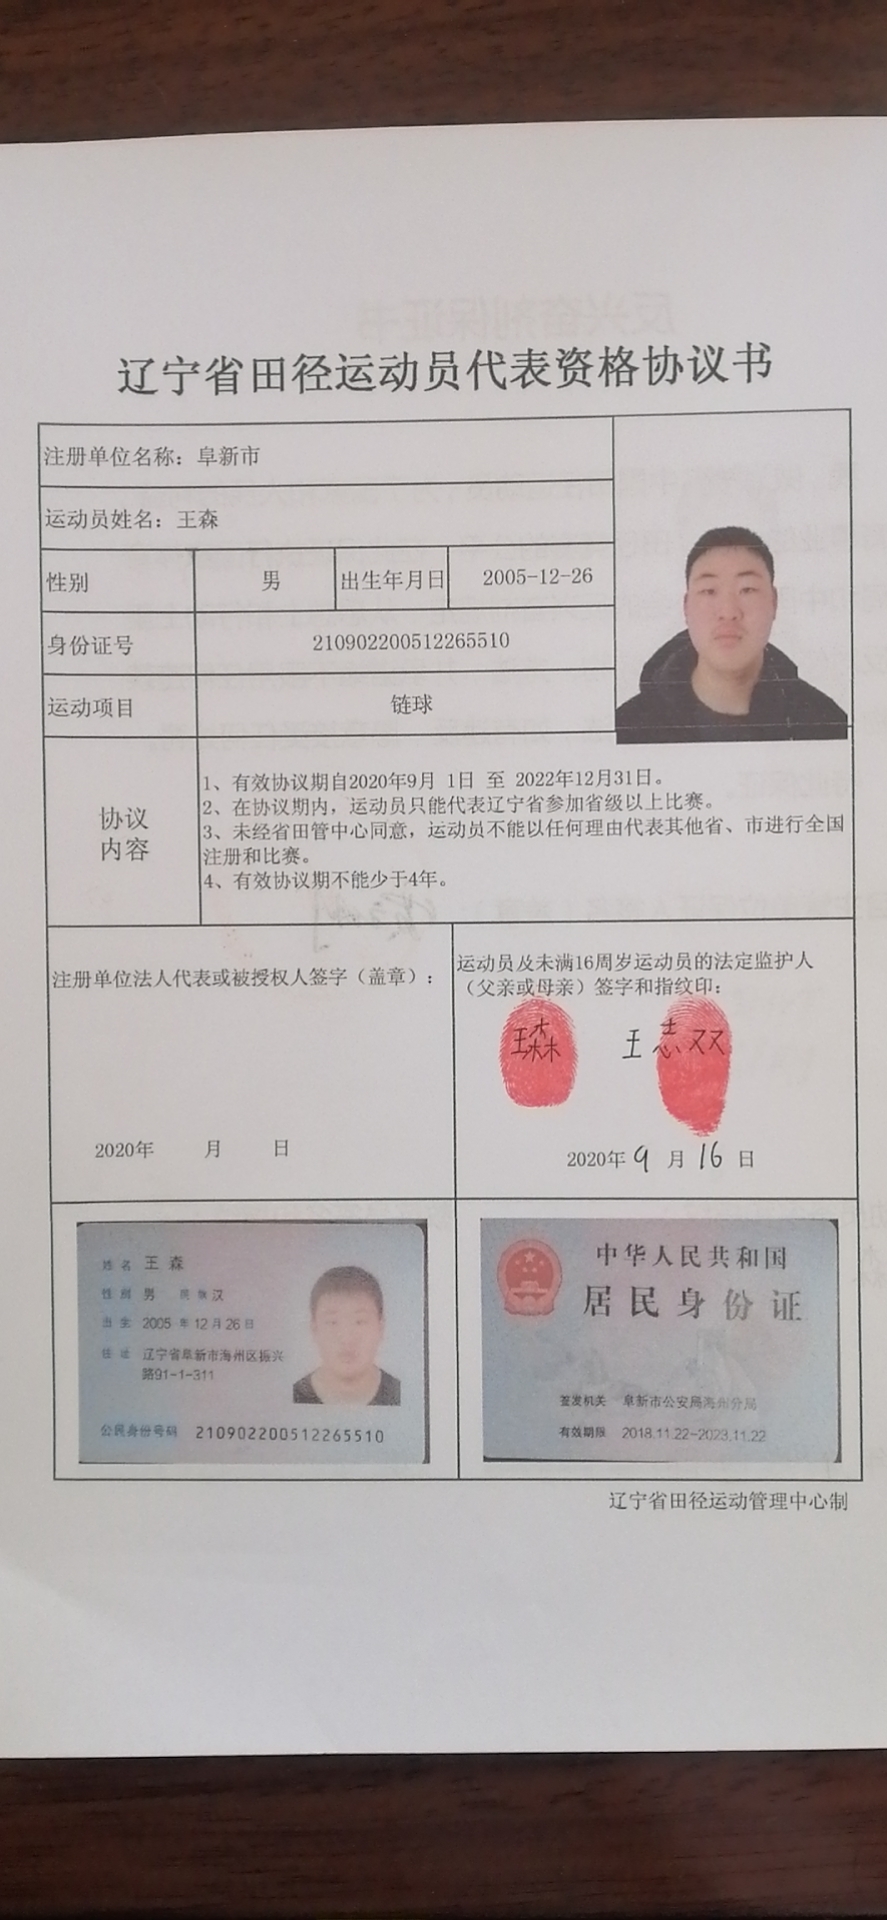 辽宁省田径运动员代表资格协议书
注册单位名称：阜新市
运动员姓名：王森
性别 男 出生年月日 2005-12-26
身份证号 210902200512265510
运动项目 链球
协议
内容
1、有效协议期自2020年9月 1日 至 2022年12月31日。
2、在协议期内，运动员只能代表辽宁省参加省级以上比赛。
3、未经省田管中心同意，运动员不能以任何理由代表其他省、市进行全国
注册和比赛。
4、有效协议期不能少于4年。
注册单位法人代表或被授权人签字（盖章）：
2020年 月 日
运动员及未满16周岁运动员的法定监护人
（父亲或母亲）签字和指纹印：
王森 王志双
2020年 9 月 16 日
姓名 王森
性别 男 民族 汉
出生 2005 年 12 月 26 日
住址 辽宁省阜新市海州区振兴
路91-1-311
公民身份号码 210902200512265510
中华人民共和国
居民身份证
签发机关 阜新市公安局海州分局
有效期限 2018.11.22-2023.11.22
辽宁省田径运动管理中心制